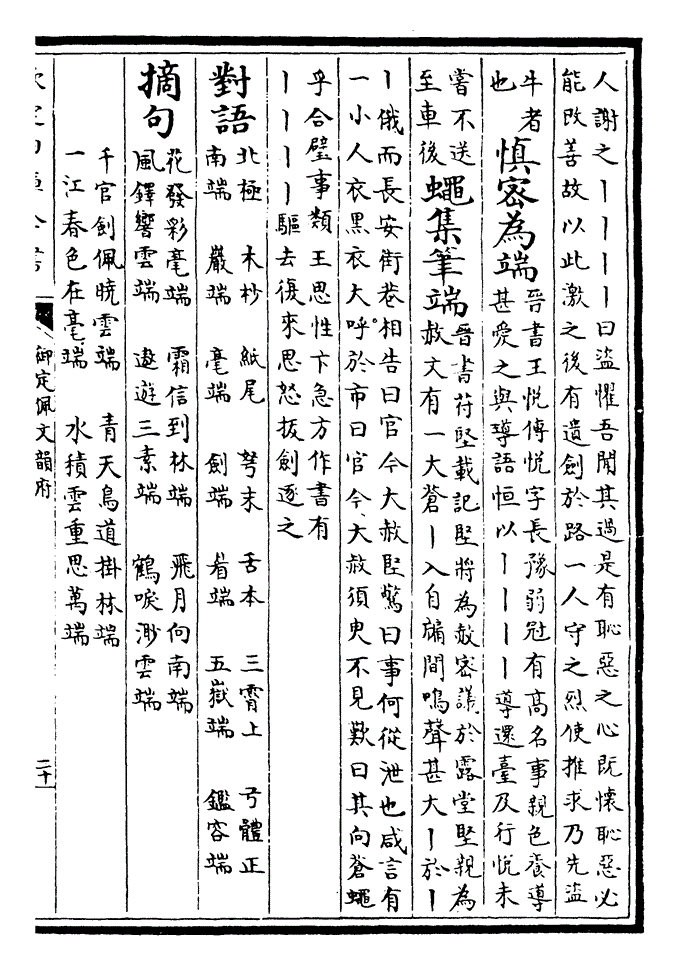 人謝之丨丨丨丨曰盜懼吾聞其過是有恥惡之心既懷恥惡必
能改善故以此激之後有遺劍於路一人守之烈使推求乃先盜
牛者
也
慎密為端
晉書王悦傳悦字長豫弱冠有髙名事親色養導
甚愛之與導語恒以丨丨丨丨導還臺及行悦未
嘗不送
至車後
蠅集筆端
晉書苻堅載記堅將為赦宻議於露堂堅親為
赦文有一大蒼丨入自牖間鳴聲甚大丨於丨
丨俄而長安街巷相告曰官今大赦堅驚曰事何從泄也咸言有
一小人衣黒衣大呼於市曰官今大赦須臾不見歎曰其向蒼蠅
乎合璧事類王思性卞急方作書有
丨丨丨丨驅去復來思怒拔劍逐之
對語
北極 木杪 紙尾 弩末 舌本 三霄上 弓體正
南端 巖端 毫端 劍端 眉端 五嶽端 鑑容端
摘句
花發彩毫端 霜信到林端 飛月向南端
風鐸響雲端 遨遊三素端 鶴唳渺雲端
千官劍佩曉雲端 青天鳥道掛林端
一江春色在毫端 水積雲重思萬端
御定佩文韻府
二十